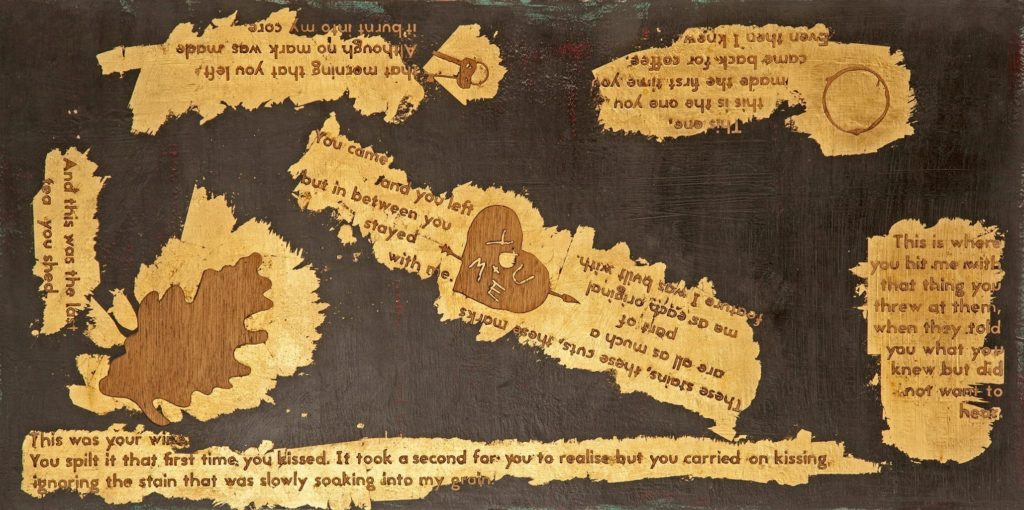 that morning that you left,
Although no mark was made
it burnt into my core
This one,
this is the one you
made the first time yo
came back for coffee.
Even then I knew
And this was the las
you shed
You came
and you left
but in between you
stayed
with me.
I
U
M + E
These stains, these cuts, these marks
are all as much a
part of
me as each original
I was built with.
This is where
you hit me with
that thing you
threw at them,
when they told
you what you
knew but did
not want to
hear
This was your wine.
You spilt it that first time you kissed. It took a second for you to realise but you carried on kissing,
ignoring the stain that was slowly soaking into my grain.